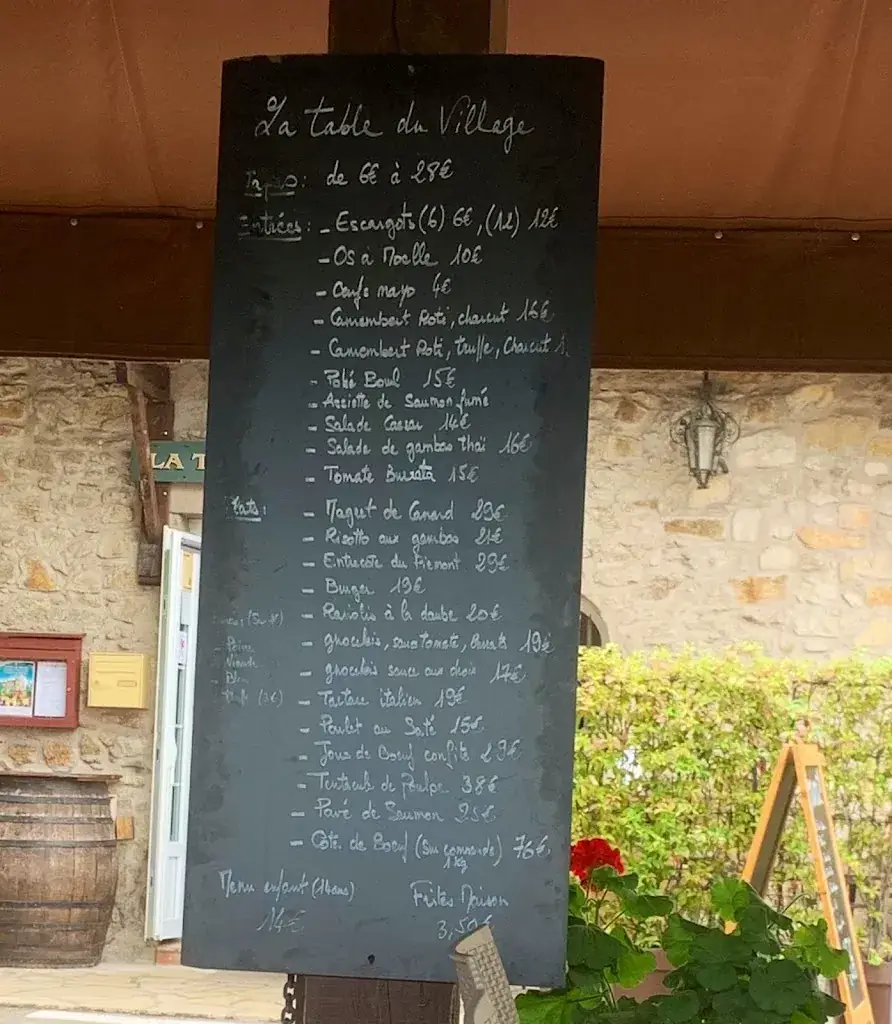 La table du Village
Tapas: de 6€ à 28€
Entrées: - Escargots (6) 6€, (12) 12€
- Os à Moelle 10€
- Oeufs mayo 4€
- Camembert Roti, charcut 16€
- Camembert Roti, truffe, Charcut
- Poké Bowl 15€
- Assiette de Saumon fumé
- Salade Caesar 14€
- Salade de gambas thaï 16€
- Tomate Burata 15€
Plats: - Magret de Canard 29€
- Risotto aux gambas 21€
- Entrecote du Piemont 29€
- Burger 19€
- Raviolis à la daube 20€
- gnocchis, sauce tomate, burrata 19€
- gnocchis sauce aux choix 17€
- Tartare italien 19€
- Poulet au Saté 15€
- Joue de Boeuf confite 29€
- Tentacule de Poulpe 38€
- Pavé de Saumon 25€
- Côte de Boeuf (Sur commande) 76€
1Kg
Menu enfant (14ans)
14€
Frites Maison
3,50€
LA T